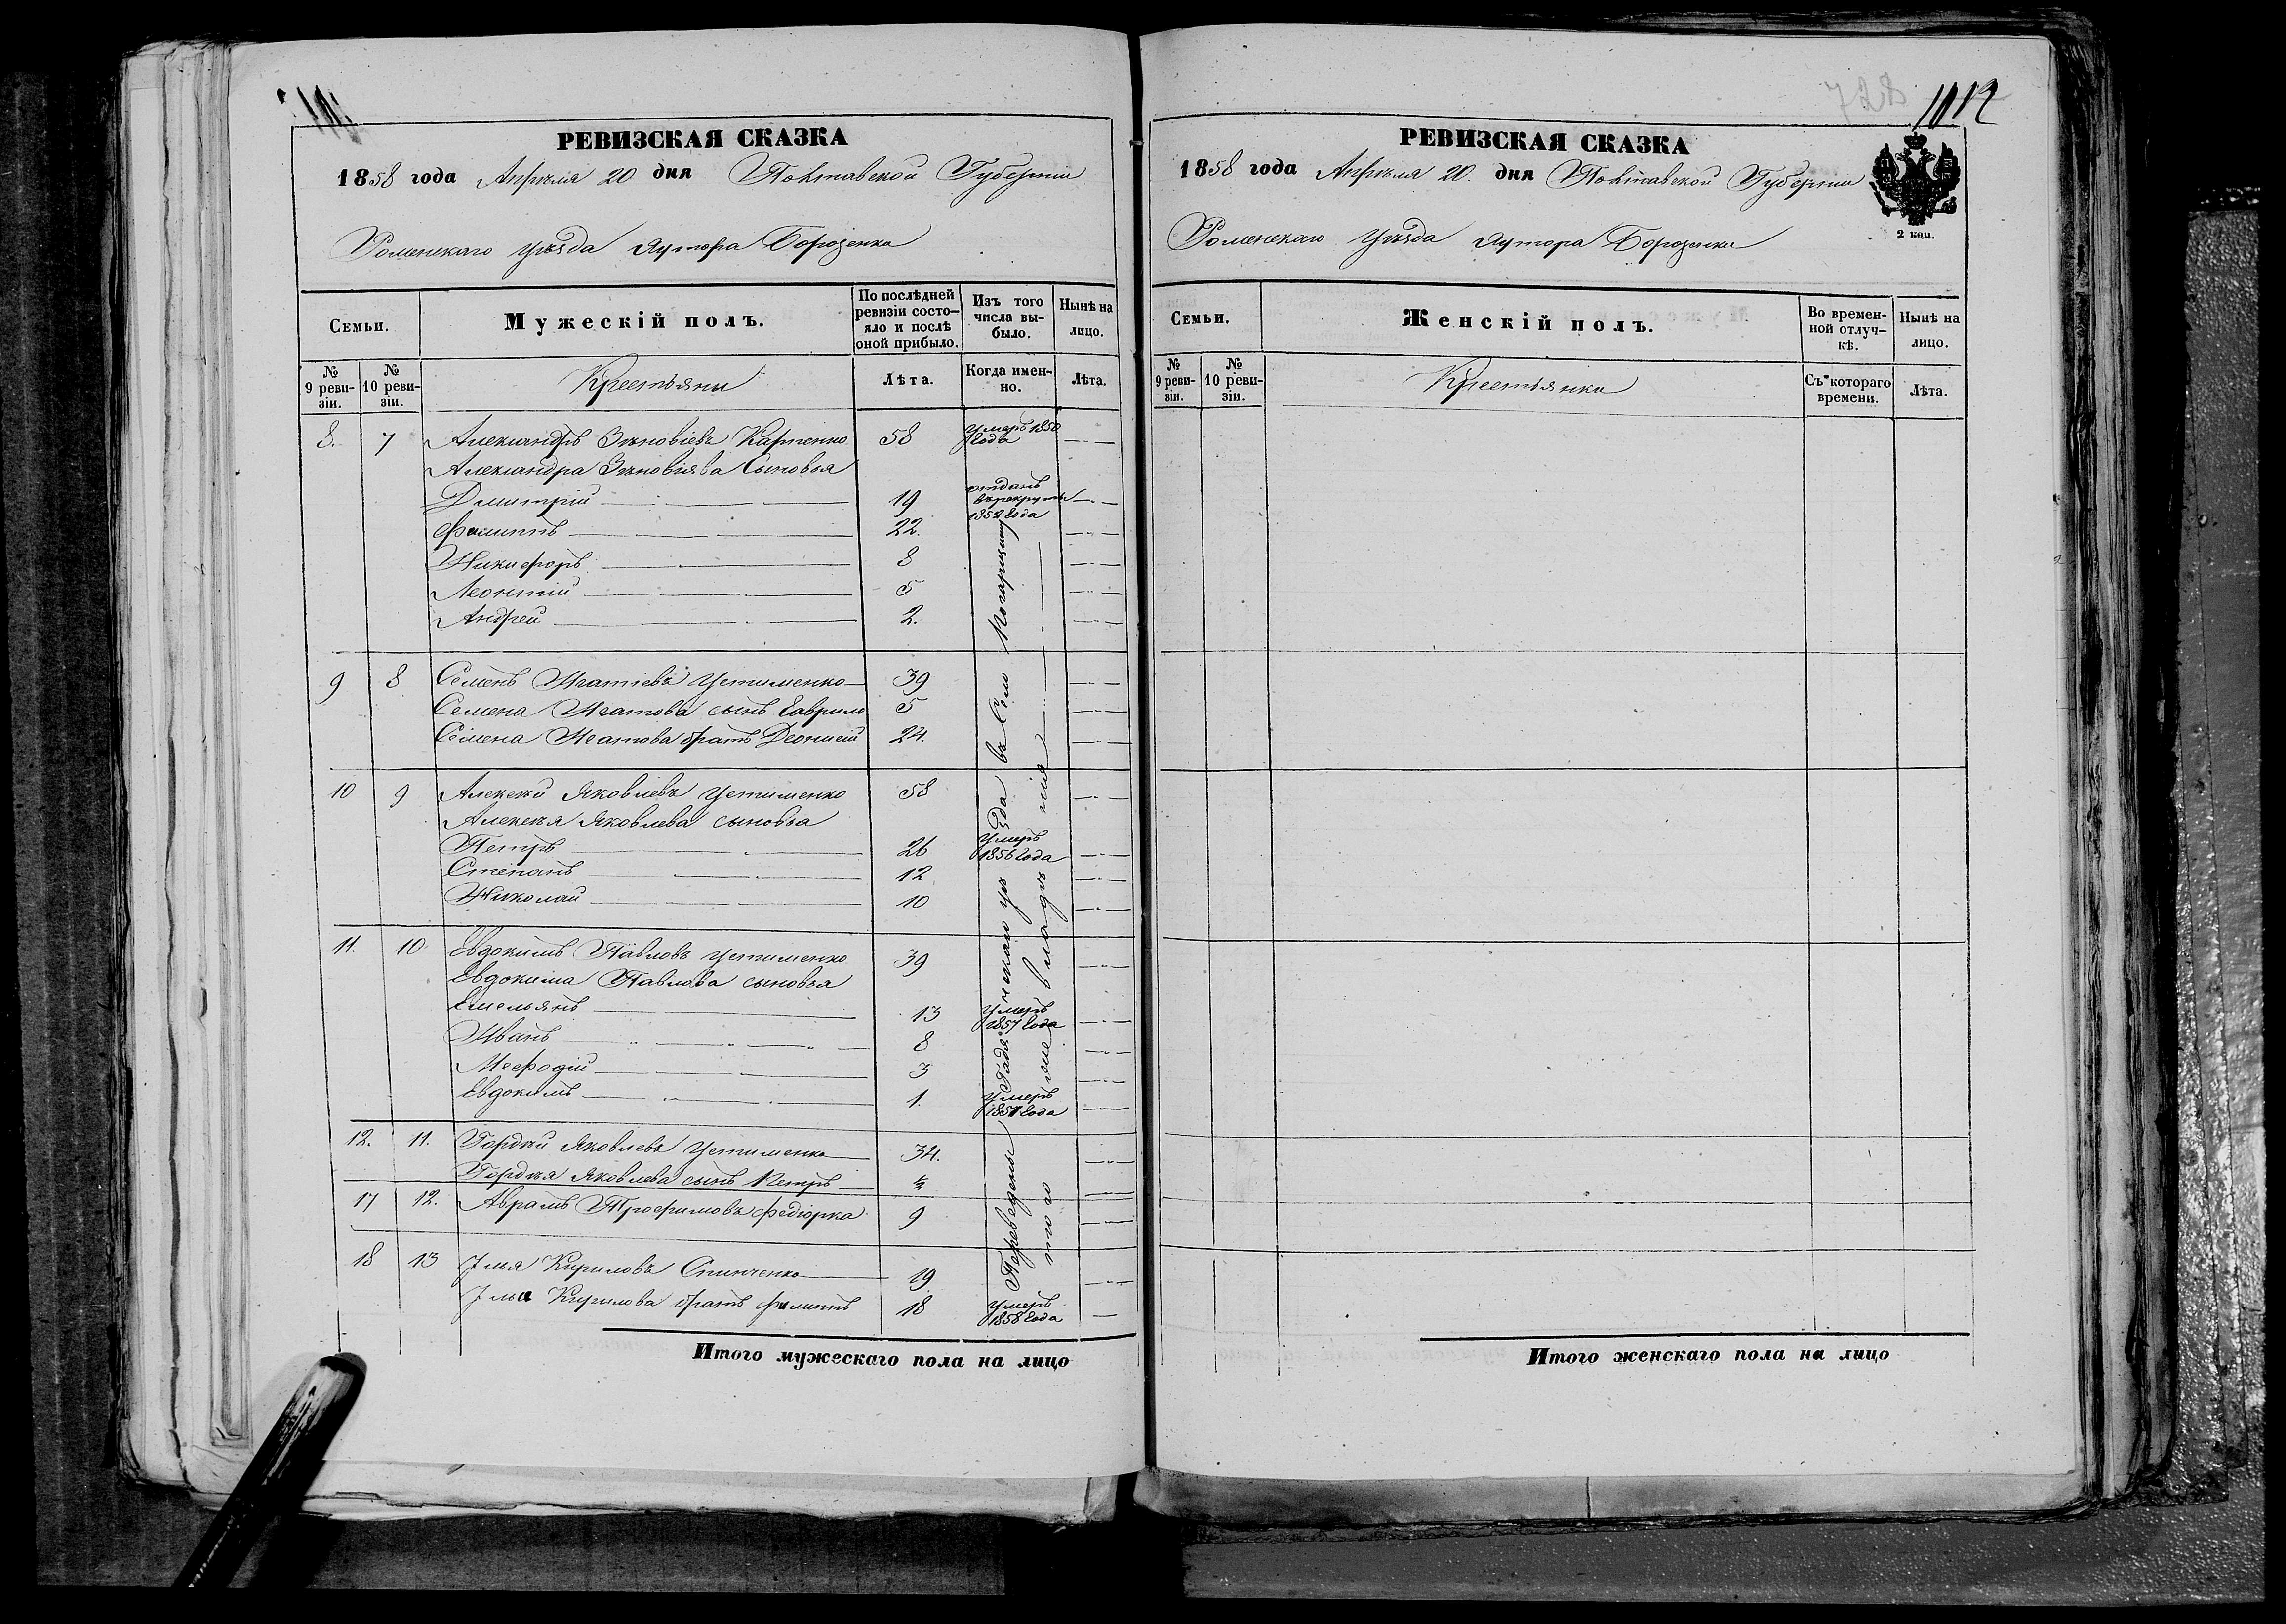 РЕВИЗСКАЯ СКАЗКА
1858 года Апрѣля 20 дня Полтавской Губерніи
Роменскаго уѣзда хутора Борозенка
Семьи.
Мужескій полъ.
По послѣдней ревизіи состояло и послѣ оной прибыло.
Изъ того числа выбыло.
Нынѣ на лицо.
№ 9 ревизіи.
№ 10 ревизіи.
Крестьяны
Лѣта.
Когда именно.
Лѣта.
8. 7 Александръ Зѣновіевъ Карпенко 58 умеръ 1850 года
Александра Зѣновіява Сыновья
Дмитрій 19 отданъ въ рекруты 1852 года
Филиппъ 22.
Никифоръ 8
Леонтій 5
Андрей 2.
9 8 Семенъ Игатіевъ Устименко 39
Семена Игатова сынъ Гаврило 5
Семена Игатова братъ Деонисій 24.
10 9 Алексѣй Яковлевъ Устименко 58
Алексѣя Яковлева сыновья
Петръ 26 умеръ 1856 года
Степанъ 12
Николай 10
11. 10 Евдокимъ Павловъ Устименко 39
Евдокима Павлова сыновья
Емельянъ 13 умеръ 1857 года
Иванъ 8
Мефодій 3
Евдокимъ 1. умеръ 1851 года
12. 11. Гордѣй Яковлевъ Устименко 34.
Гордѣя Яковлева сынъ Петръ
17 12. Аврамъ Трофимовъ Федюрка 9
18 13 Илья Кириловъ Спинченко 19
Ильи Кирилова братъ Филиппъ 18 умеръ 1858 года
Переведены Гадячскаго уѣзда въ Село
того владѣнія
Итого мужескаго пола на лицо
1012
РЕВИЗСКАЯ СКАЗКА
1858 года Апрѣля 20 дня Полтавской Губерніи
2 коп.
Роменскаго Уѣзда хутора Борозенка
Семьи.
Женскій полъ.
Во временной отлучкѣ.
Нынѣ на лицо.
№ 9 ревизіи.
№ 10 ревизіи.
Крестьянки
Съ котораго времени.
Лѣта.
Итого женскаго пола на лицо